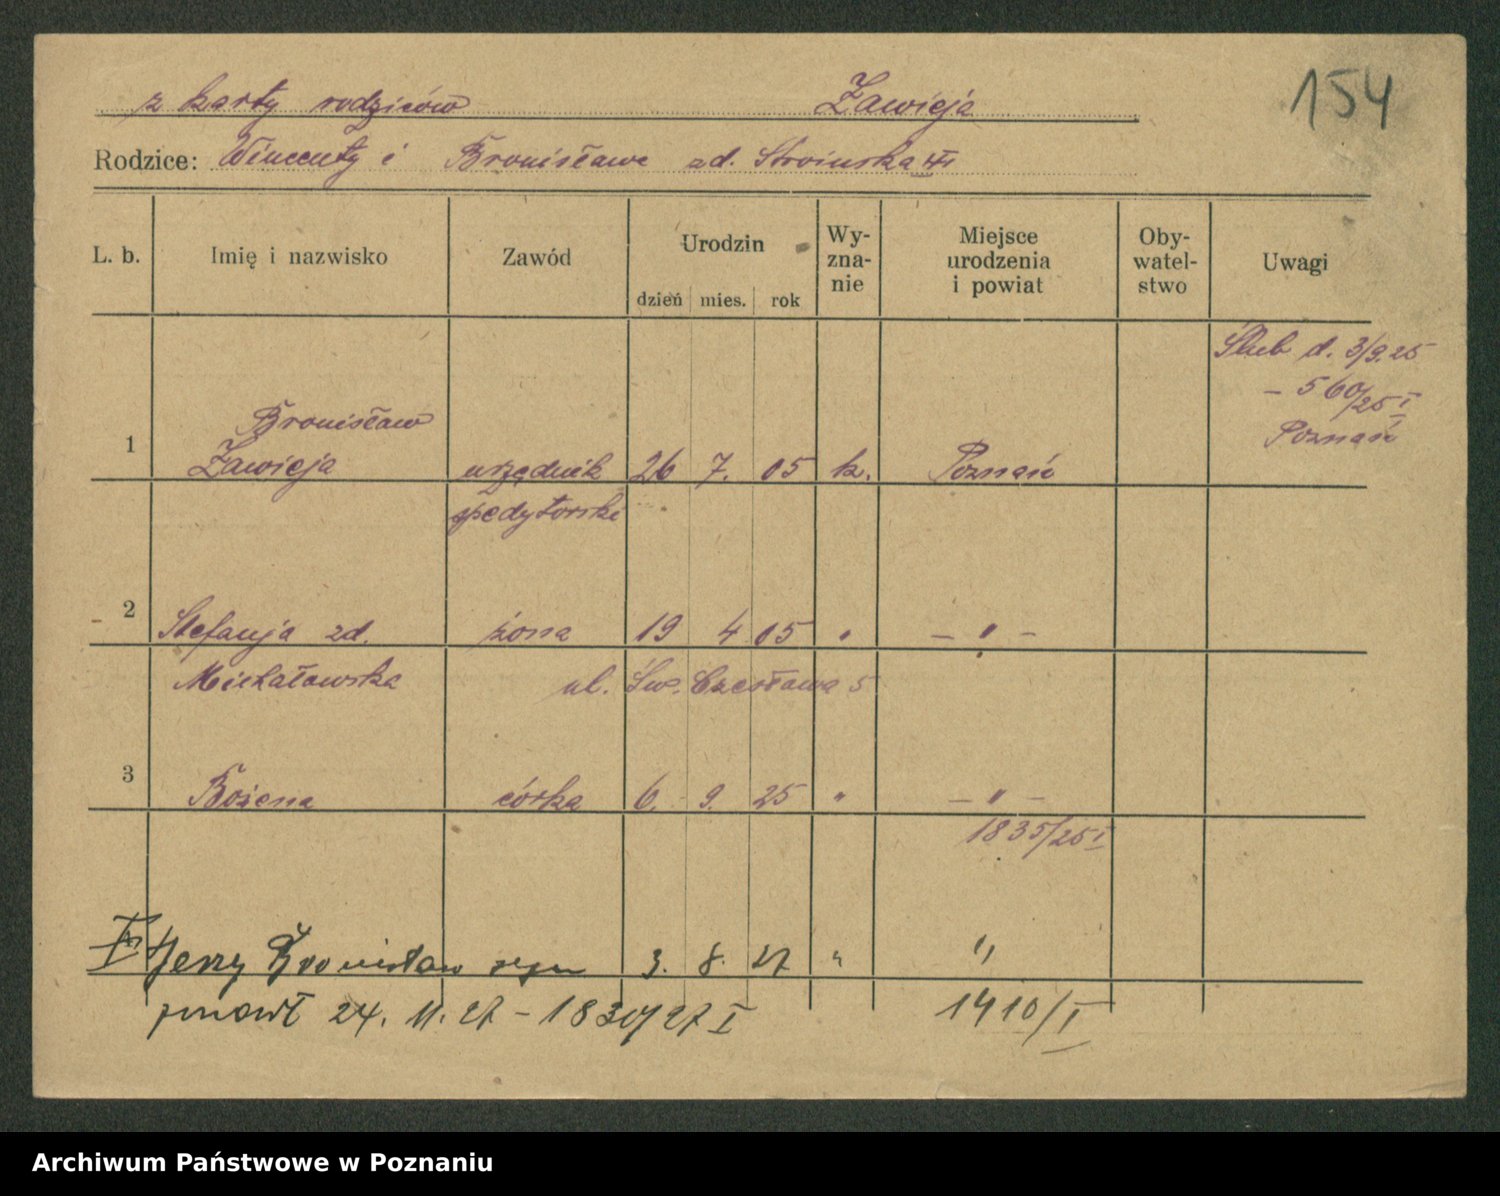 154
z karty rodziców Zawieja
Rodzice: Wincenty i Bronisława zd. Stroinska
L. b. Imię i nazwisko Zawód Urodzin dzień mies. rok Wy-zna-nie Miejsce urodzenia i powiat Oby-watel-stwo Uwagi
Ślub d. 3/9.25
– 560/25 I
Poznań
Bronisław
1 Zawieja urzędnik 26 7. 05 k. Poznań
spedytorski
2 Stefanja zd. żona 19 4 05 " – " –
Michałowska ul. Św. Czesława 5
3 Bożena córka 6. 9. 25 " – " –
1835/25 I
Jerzy Bronisław syn 3. 8. 27 " "
zmarł 24. 11. 27 – 1830/27 I 1410/I
Archiwum Państwowe w Poznaniu